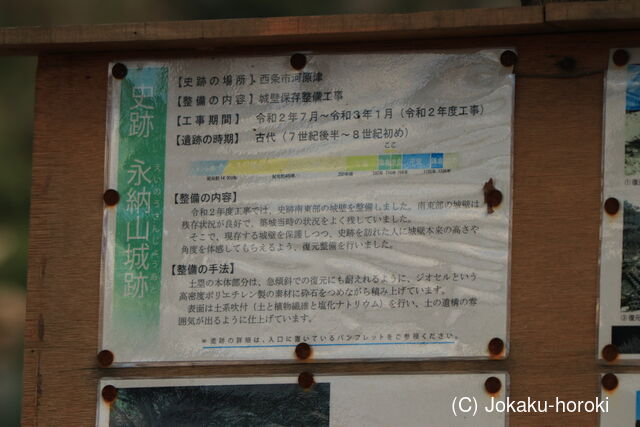 史跡 永納山城跡
えいのうさんじょうあと
【史跡の場所】西条市河原津
【整備の内容】城壁保存整備工事
【工事期間】 令和2年7月～令和3年1月（令和2年度工事）
【遺跡の時期】 古代（7世紀後半～8世紀初め）
ここ
【整備の内容】
令和2年度工事では、史跡南東部の城壁を整備しました。南東部の城壁は
残存状況が良好で、築城当時の状況をよく残していました。
そこで、現存する城壁を保護しつつ、史跡を訪れた人に城壁本来の高さや
角度を体感してもらえるよう、復元整備を行いました。
【整備の手法】
土塁の本体部分は、急傾斜での復元にも耐えれるように、ジオセルという
高密度ポリエチレン製の素材に砕石をつめながら積み上げています。
表面は土系吹付（土と植物繊維と塩化ナトリウム）を行い、土の遺構の雰
囲気が出るように仕上げています。
＊遺跡の詳細は、入口に置いているパンフレットをご参照ください。
(C) Jokaku-horoki